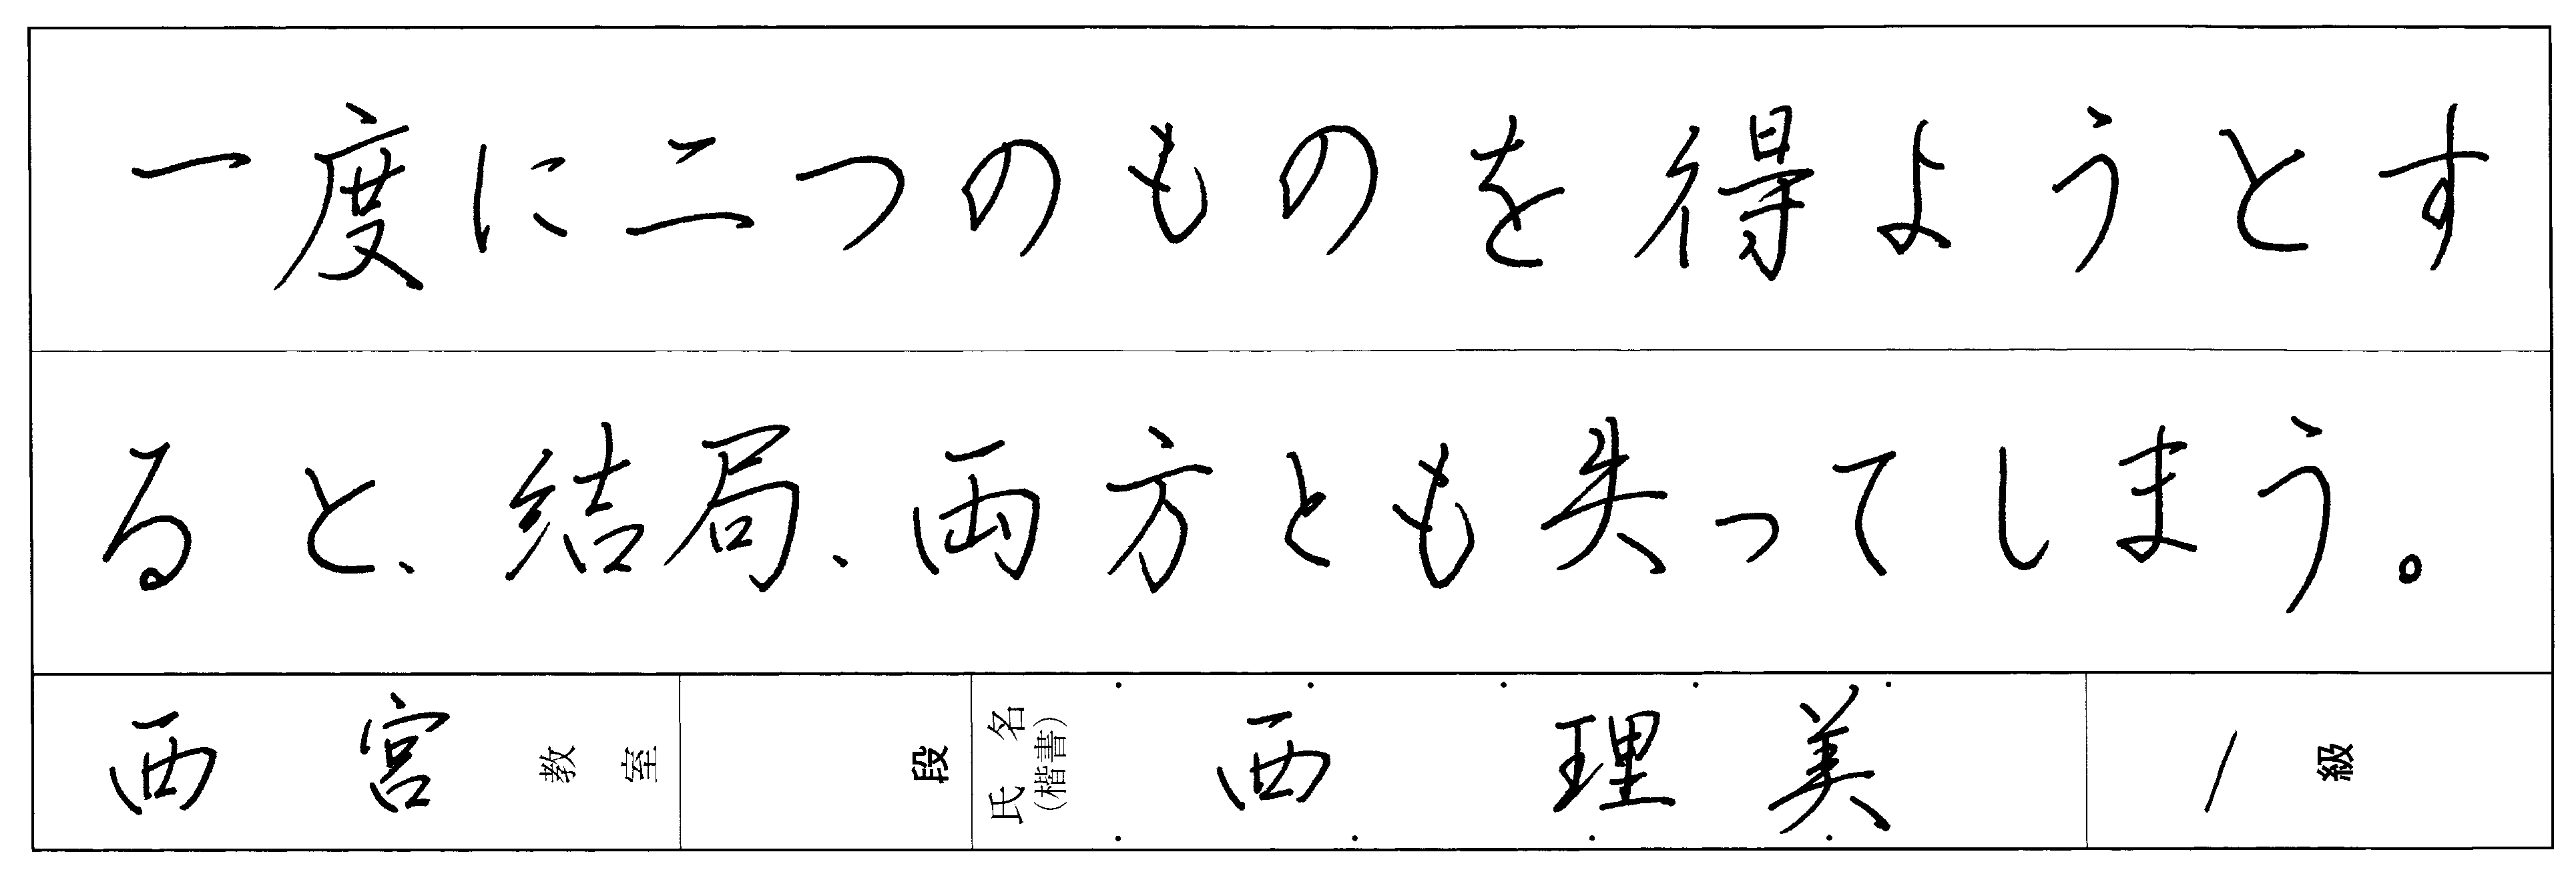 一度に二つのものを得ようとす
ると、結局、両方とも失ってしまう。
西宮 教室 段 氏名(楷書) 西 理美 1 級